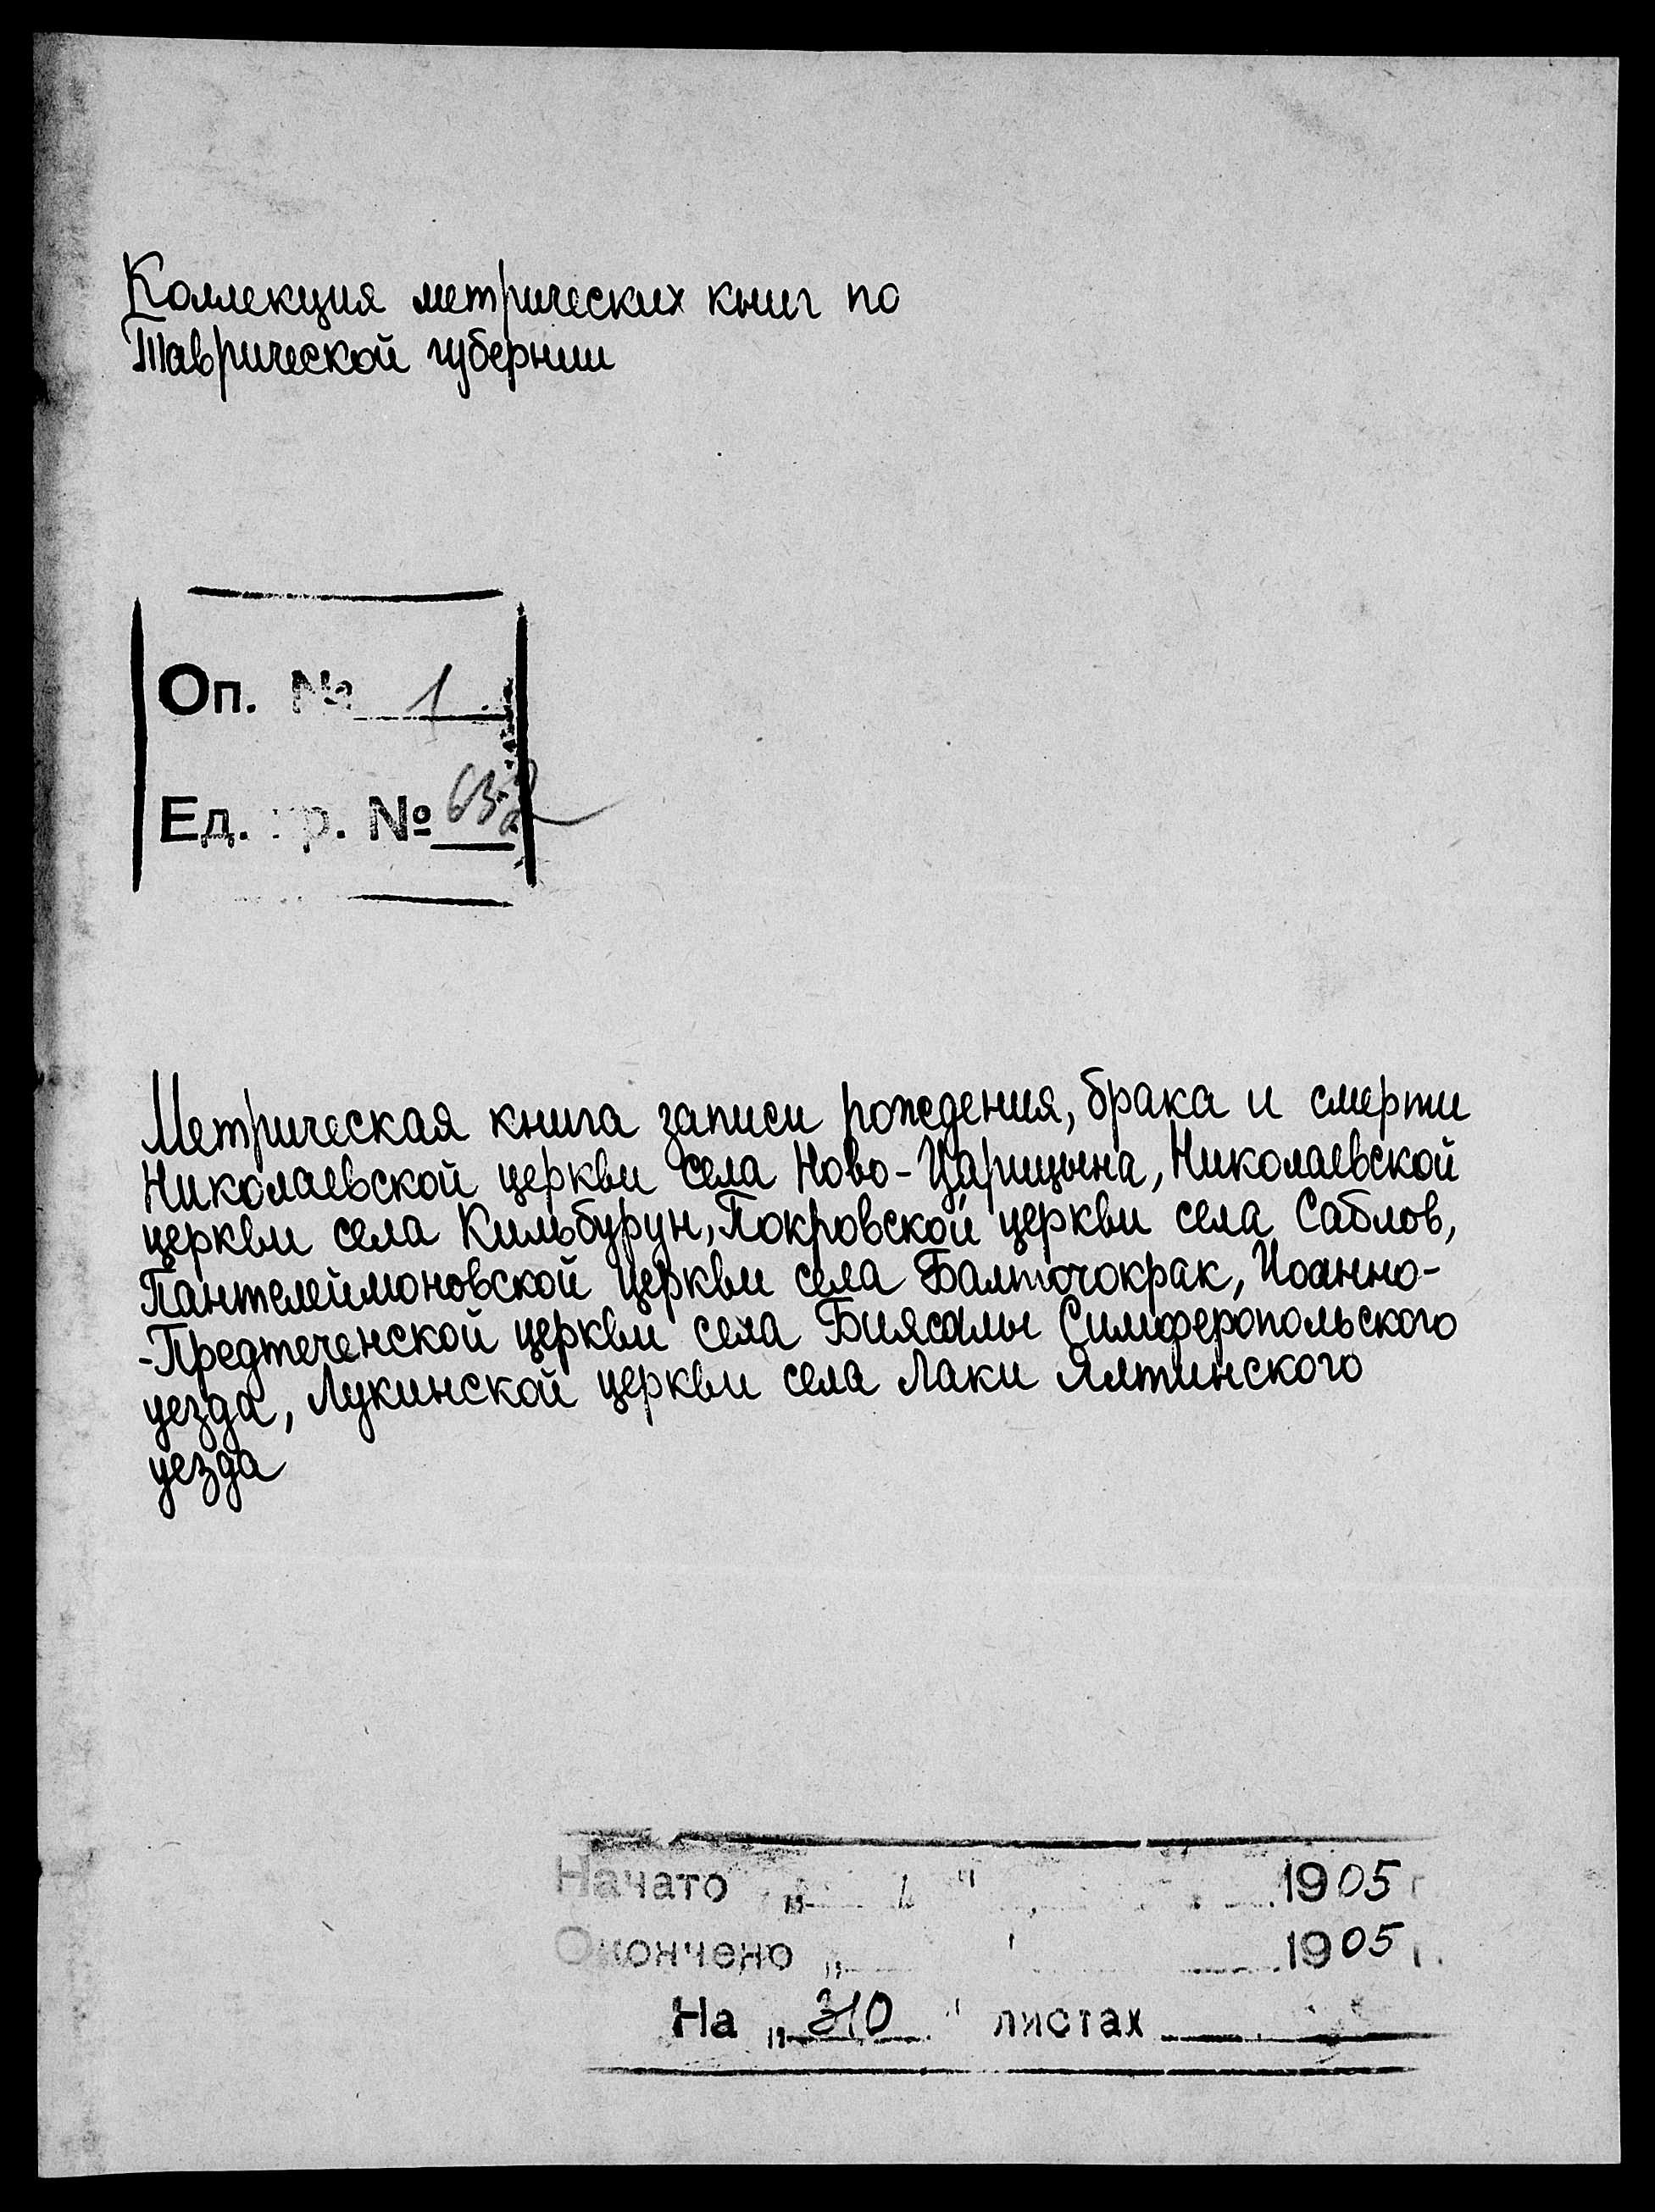 Коллекция метрических книг по
Таврической губернии
Оп. № 1
Ед. хр. №
Метрическая книга записи рождения, брака и смерти
Николаевской церкви села Ново-Царицына, Николаевской
церкви села Кильбурун, Покровской церкви села Саблов,
Пантелеймоновской церкви села Балточокрак, Иоанно-
-Предтеченской церкви села Биясалы Симферопольского
уезда, Лукинской церкви села Лаки Ялтинского
уезда
Начато " " 1905 г
Окончено " " 1905 г.
На " 310 " листах